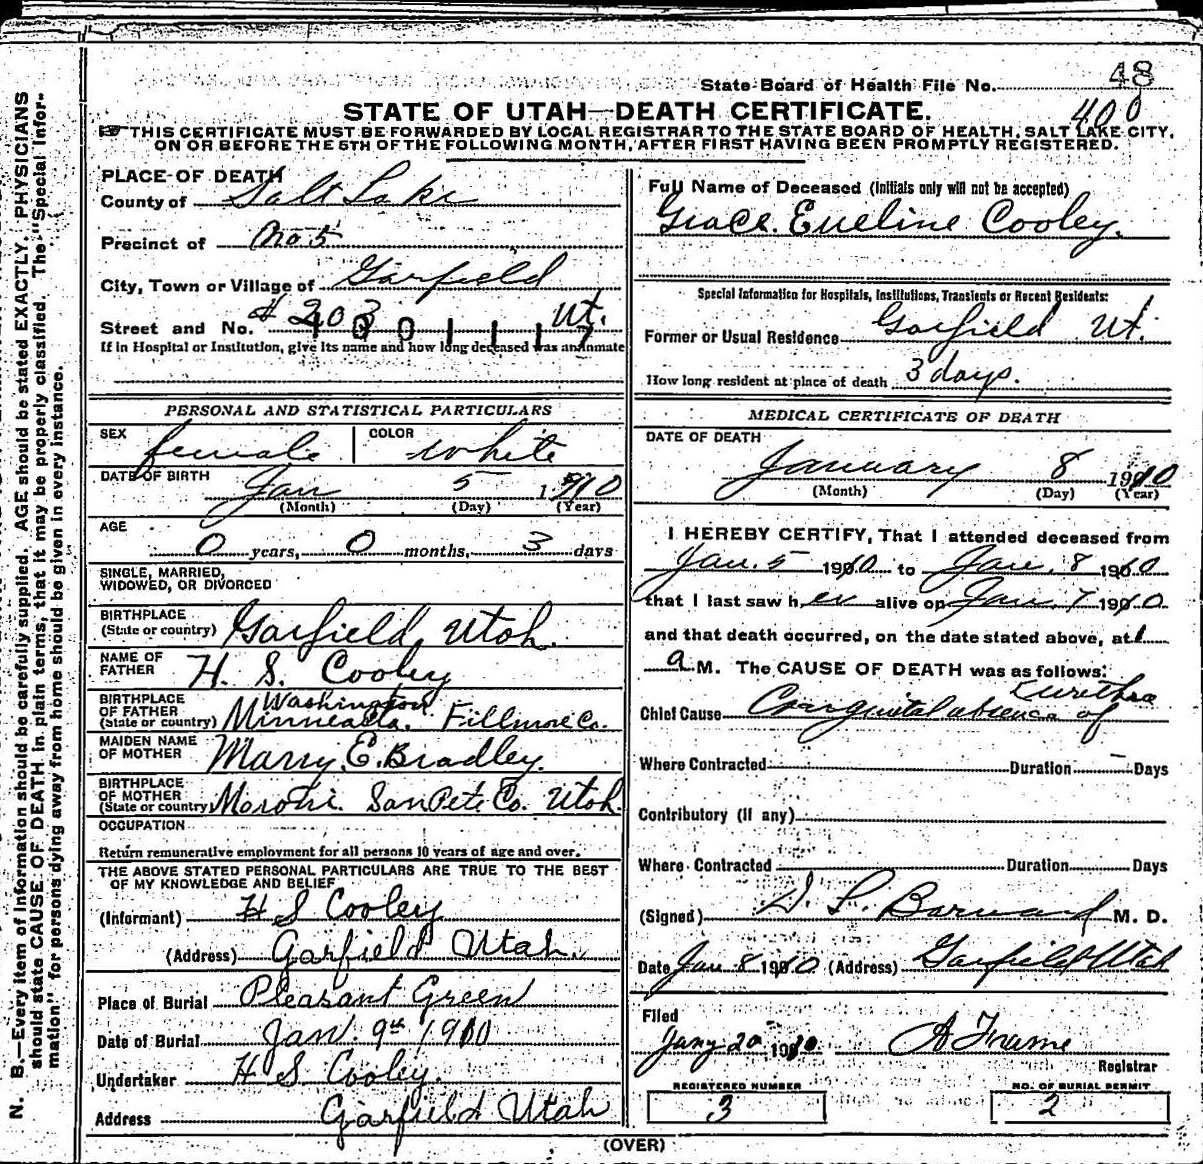 48
State Board of Health File No.
400
STATE OF UTAH—DEATH CERTIFICATE.
THIS CERTIFICATE MUST BE FORWARDED BY LOCAL REGISTRAR TO THE STATE BOARD OF HEALTH, SALT LAKE CITY,
ON OR BEFORE THE 5TH OF THE FOLLOWING MONTH, AFTER FIRST HAVING BEEN PROMPTLY REGISTERED.
PLACE OF DEATH
County of Salt Lake
Precinct of No 5
City, Town or Village of Garfield
Street and No. # 203 Ut.
If in Hospital or Institution, give its name and how long deceased was an inmate
PERSONAL AND STATISTICAL PARTICULARS
SEX female COLOR white
DATE OF BIRTH Jan 5 1910
(Month) (Day) (Year)
AGE
0 years, 0 months, 3 days
SINGLE, MARRIED,
WIDOWED, OR DIVORCED
BIRTHPLACE
(State or country) Garfield, Utah.
NAME OF
FATHER H. S. Cooley
BIRTHPLACE Washington
OF FATHER
(State or country) Fillmore Co.
MAIDEN NAME
OF MOTHER Marry. E. Bradley.
BIRTHPLACE
OF MOTHER
(State or country) Moroni. SanPete Co. Utah.
OCCUPATION
Return remunerative employment for all persons 10 years of age and over.
THE ABOVE STATED PERSONAL PARTICULARS ARE TRUE TO THE BEST
OF MY KNOWLEDGE AND BELIEF
(Informant) H S Cooley
(Address) Garfield Utah.
Place of Burial Pleasant Green
Date of Burial Jan. 9th 1910
Undertaker H S Cooley.
Address Garfield Utah
Full Name of Deceased (Initials only will not be accepted)
Grace. Eveline Cooley.
Special Information for Hospitals, Institutions, Transients or Recent Residents:
Former or Usual Residence Garfield Ut.
How long resident at place of death 3 days.
MEDICAL CERTIFICATE OF DEATH
DATE OF DEATH
January 8 1910
(Month) (Day) (Year)
I HEREBY CERTIFY, That I attended deceased from
Jan. 5 1910 to Jan. 8 1910
that I last saw her alive on Jan. 7 1910
and that death occurred, on the date stated above, at 1
a M. The CAUSE OF DEATH was as follows:
Chief Cause Congenital absence of urethra
Where Contracted Duration - Days
Contributory (if any)
Where Contracted Duration Days
(Signed) Barnard M. D.
Date Jan 8 1910 (Address) Garfield Utah
Filed
Jany 20 1910 A Frame
Registrar
REGISTERED NUMBER
3
NO. OF BURIAL PERMIT
2
(OVER)
N. B.—Every item of information should be carefully supplied. AGE should be stated EXACTLY. PHYSICIANS
should state CAUSE OF DEATH in plain terms, that it may be properly classified. The "Special Infor-
mation" for persons dying away from home should be given in every instance.